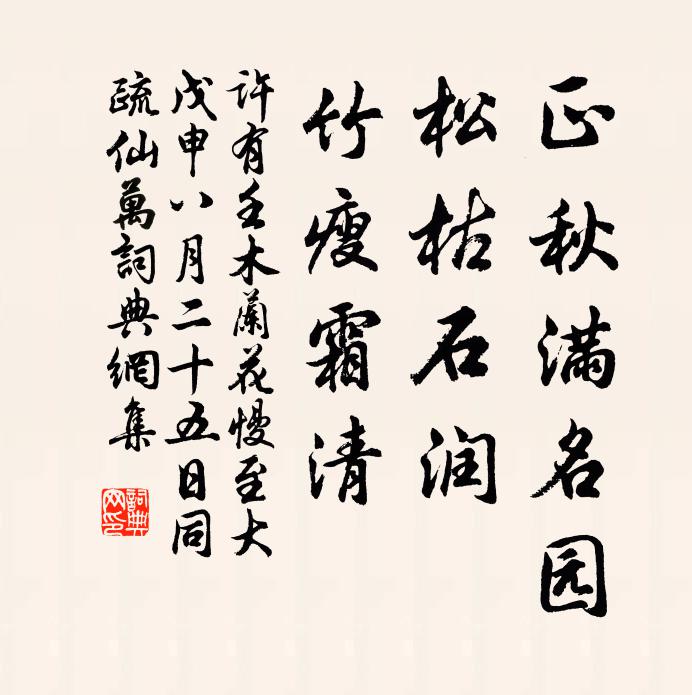 正秋满名园
松枯石润
竹瘦霜清
许有壬木蘭花慢至大
戊申八月二十五日同
疏仙萬詞典網集
詞典网印